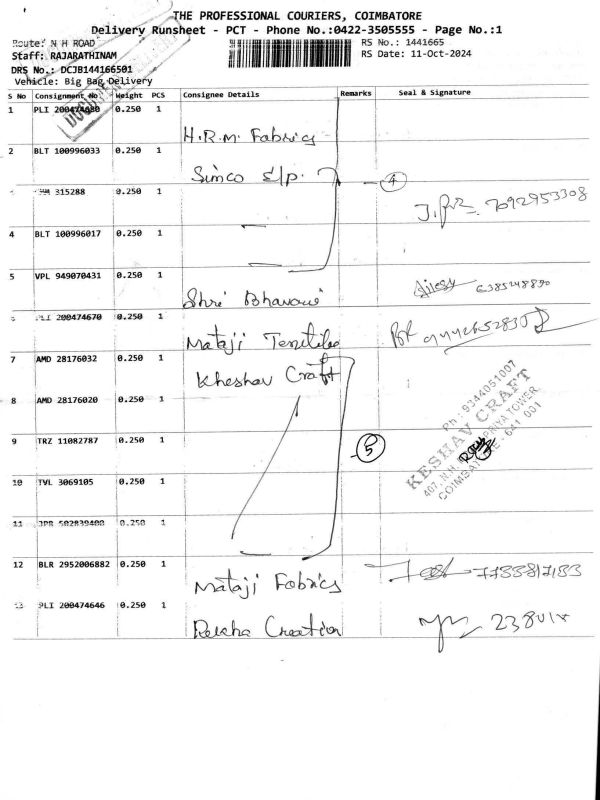 THE PROFESSIONAL COURIERS, COIMBATORE
Delivery Runsheet - PCT - Phone No.:0422-3505555 - Page No.:1
Route: N H ROAD
RS No.: 1441665
Staff: RAJARATHINAM
RS Date: 11-Oct-2024
DRS No.: DCJB144166501
Vehicle: Big Bag Delivery
S No Consignment No Weight PCS Consignee Details Remarks Seal & Signature
1 PLI 200474680 0.250 1 H.R.M. Fabrics
2 BLT 100996033 0.250 1 Simco
4
315288 0.250 1 7092953308
4 BLT 100996017 0.250 1
5 VPL 949070431 0.250 1 Shri Bhavani 6385248890
PLI 200474670 0.250 1 Mataji
7 AMD 28176032 0.250 1 Kheshav Craft
8 AMD 28176020 0.250 1
9 TRZ 11082787 0.250 1
5
10 TVL 3069105 0.250 1
11 JPR 502839408 0.250 1
12 BLR 2952006882 0.250 1 Mataji Fabrics
13 PLI 200474646 0.250 1 Creation
Ph : 9344051007
KESHAV CRAFT
407, N.H.
641 001